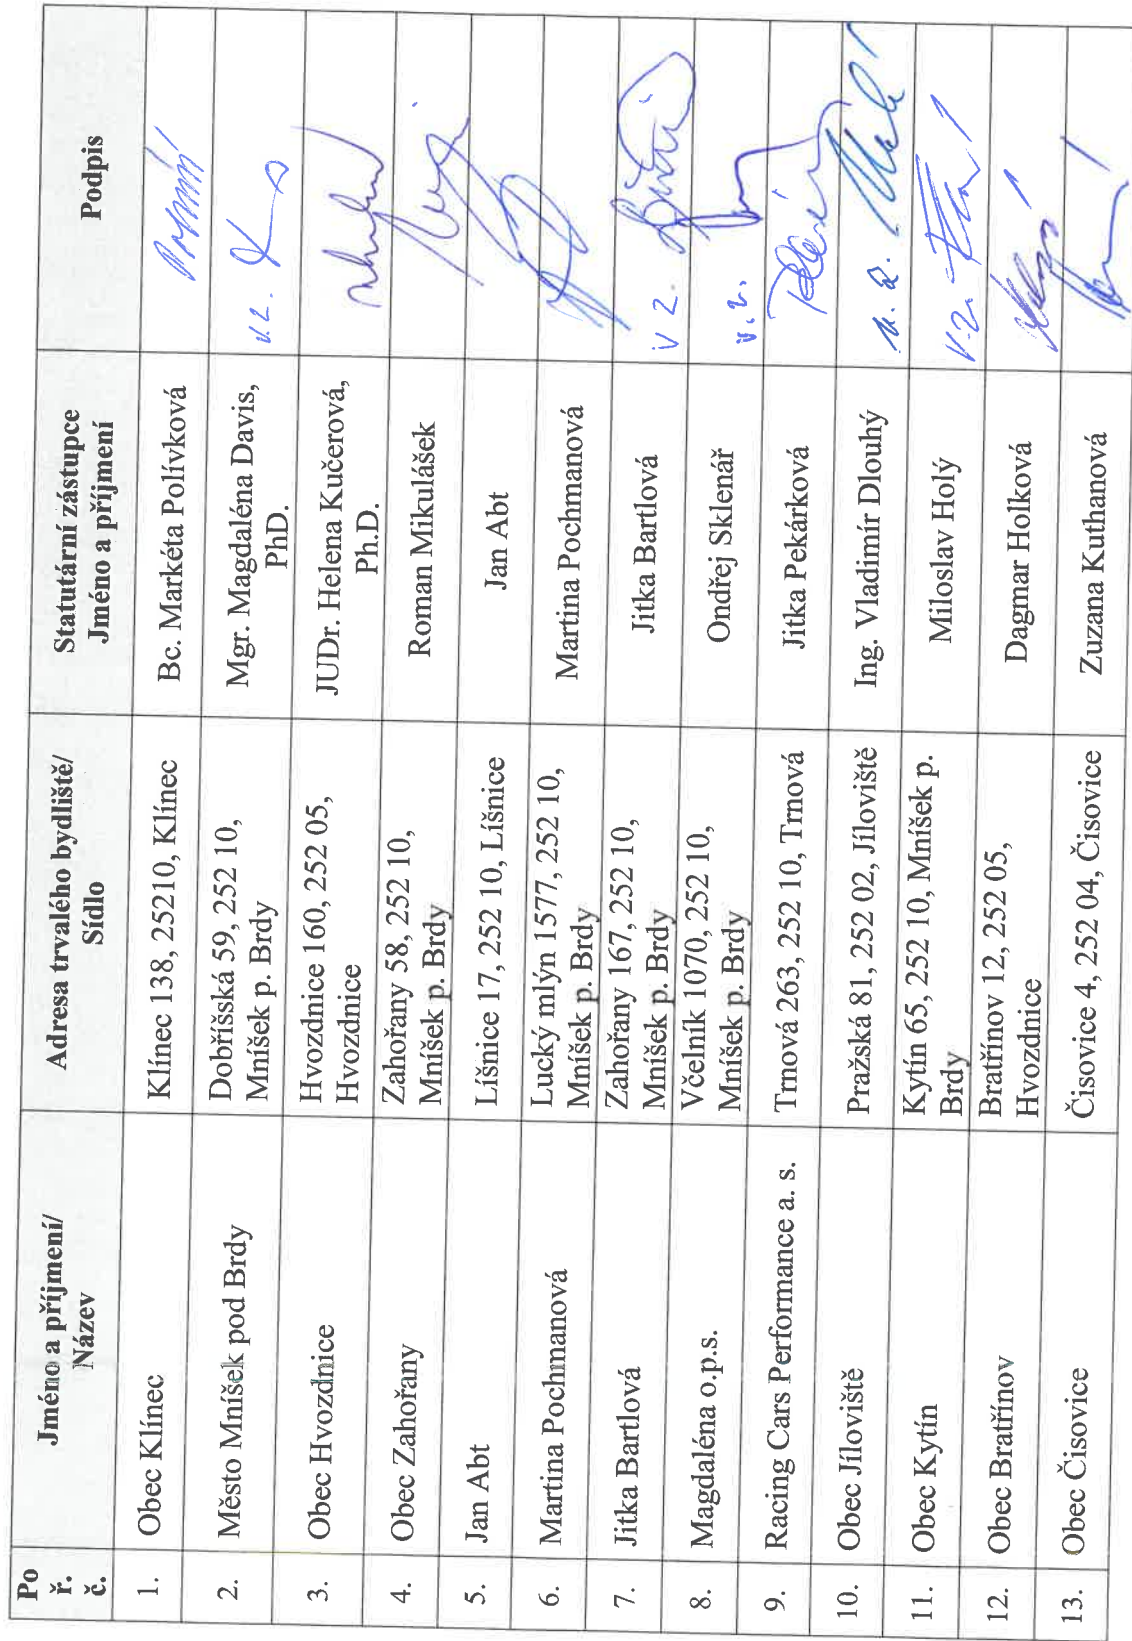 Po
ř.
č.
Jméno a příjmení/
Název
Adresa trvalého bydliště/
Sídlo
Statutární zástupce
Jméno a příjmení
Podpis
1.
Obec Klínec
Klínec 138, 25210, Klínec
Bc. Markéta Polívková
2.
Město Mníšek pod Brdy
Dobříšská 59, 252 10,
Mníšek p. Brdy
Mgr. Magdaléna Davis,
PhD.
v.z.
3.
Obec Hvozdnice
Hvozdnice 160, 252 05,
Hvozdnice
JUDr. Helena Kučerová,
Ph.D.
4.
Obec Zahořany
Zahořany 58, 252 10,
Mníšek p. Brdy
Roman Mikulášek
5.
Jan Abt
Líšnice 17, 252 10, Líšnice
Jan Abt
6.
Martina Pochmanová
Lucký mlýn 1577, 252 10,
Mníšek p. Brdy
Martina Pochmanová
7.
Jitka Bartlová
Zahořany 167, 252 10,
Mníšek p. Brdy
Jitka Bartlová
v z.
8.
Magdaléna o.p.s.
Včelník 1070, 252 10,
Mníšek p. Brdy
Ondřej Sklenář
v.z.
9.
Racing Cars Performance a. s.
Trnová 263, 252 10, Trnová
Jitka Pekárková
10.
Obec Jíloviště
Pražská 81, 252 02, Jíloviště
Ing. Vladimír Dlouhý
11.
Obec Kytín
Kytín 65, 252 10, Mníšek p.
Brdy
Miloslav Holý
v.z.
12.
Obec Bratřínov
Bratřínov 12, 252 05,
Hvozdnice
Dagmar Holková
13.
Obec Čisovice
Čisovice 4, 252 04, Čisovice
Zuzana Kuthanová